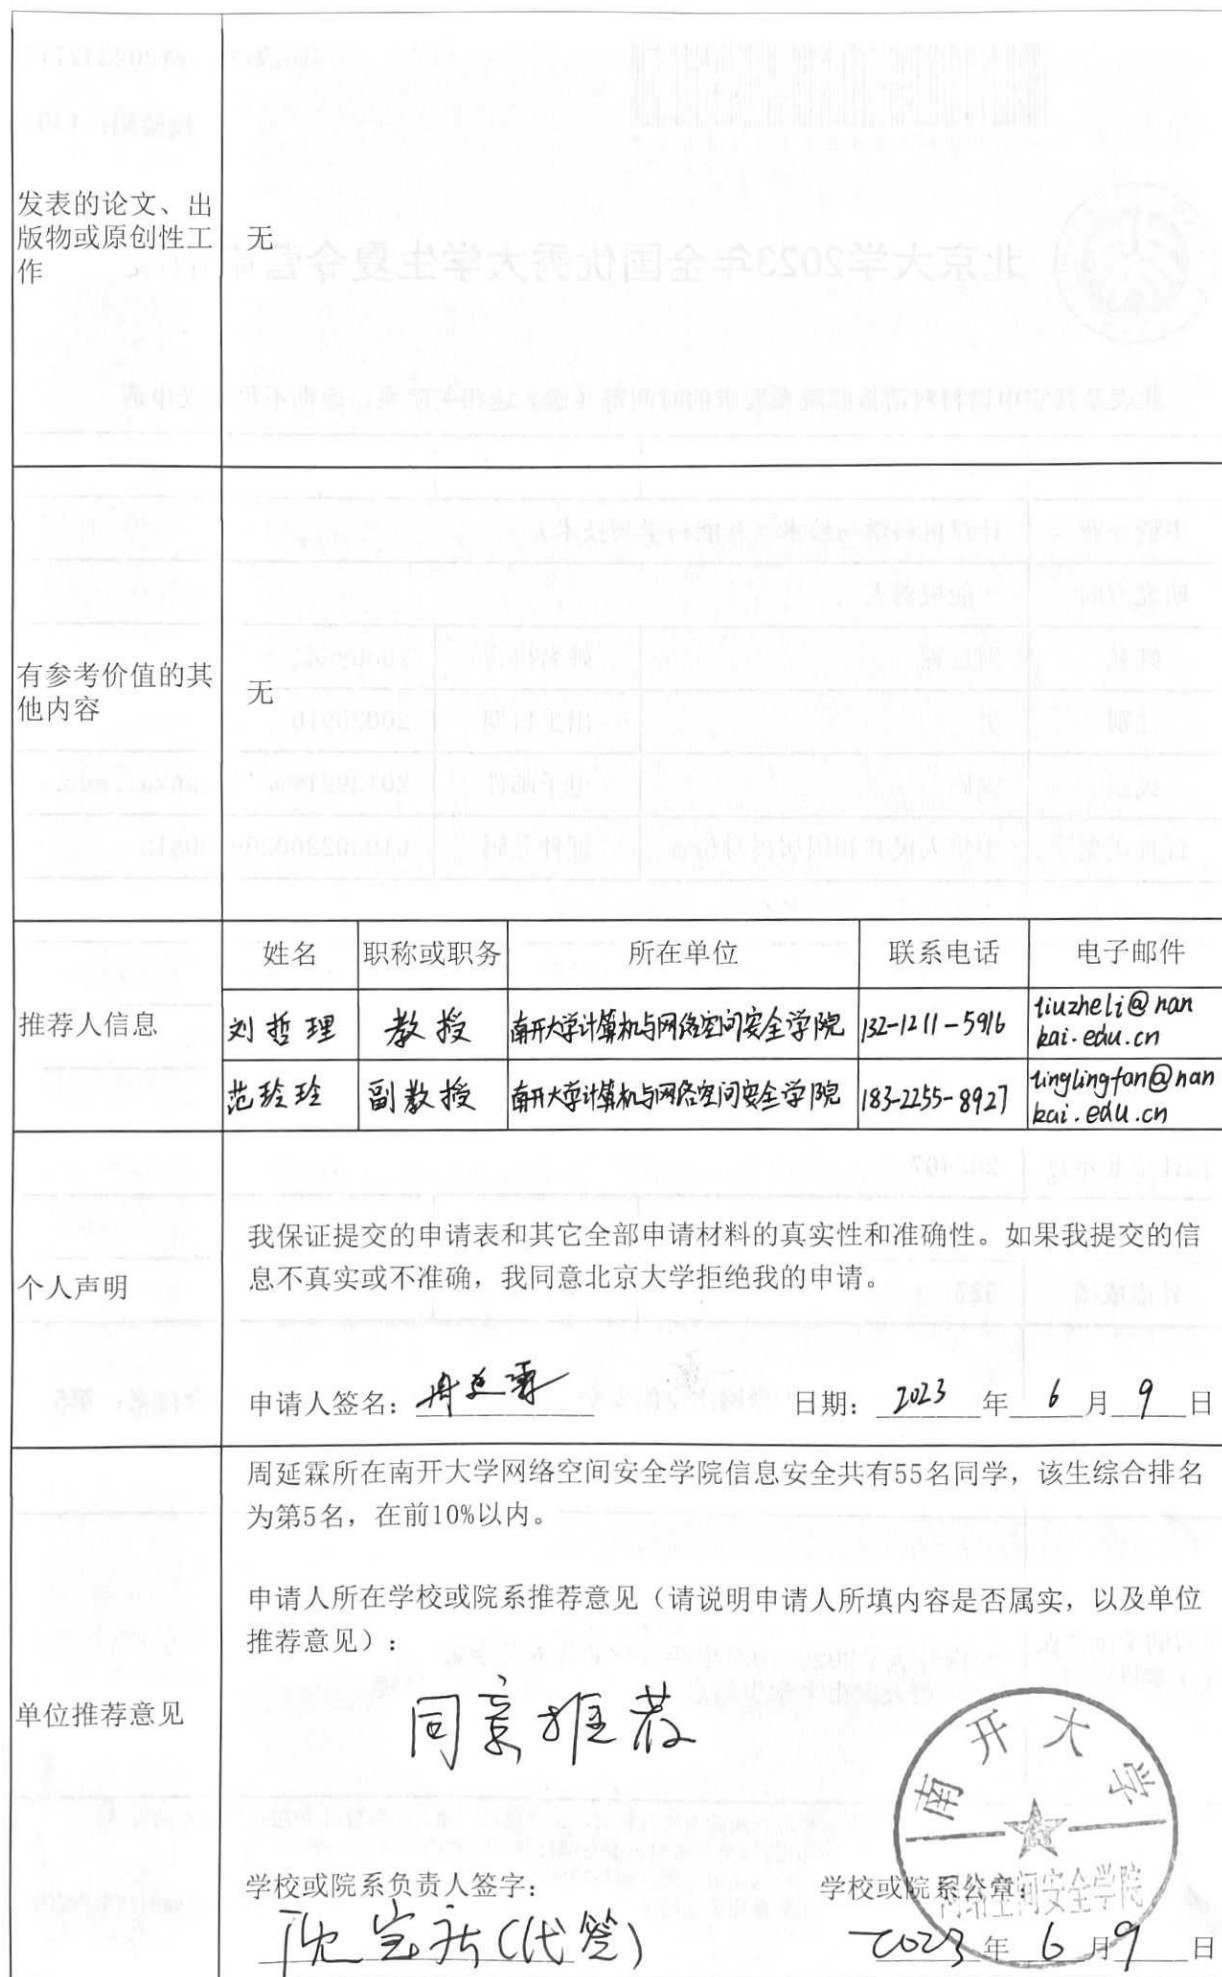 发表的论文、出
版物或原创性工
作
无
北京大学2023年全国优秀大学生夏令营
有参考价值的其
他内容
无
推荐人信息
姓名
职称或职务
所在单位
联系电话
电子邮件
刘哲理
教授
南开大学计算机与网络空间安全学院
132-1211-5916
liuzheli@nan
kai.edu.cn
范玲玲
副教授
南开大学计算机与网络空间安全学院
183-2255-8927
linglingfan@nan
kai.edu.cn
个人声明
我保证提交的申请表和其它全部申请材料的真实性和准确性。如果我提交的信
息不真实或不准确，我同意北京大学拒绝我的申请。
申请人签名：周延霖 日期：2023年6月9日
单位推荐意见
周延霖所在南开大学网络空间安全学院信息安全共有55名同学，该生综合排名
为第5名，在前10%以内。
申请人所在学校或院系推荐意见（请说明申请人所填内容是否属实，以及单位
推荐意见）：
同意推荐
南开大学
网络空间安全学院
学校或院系负责人签字：
学校或院系公章：
(代签)
2023年6月9日